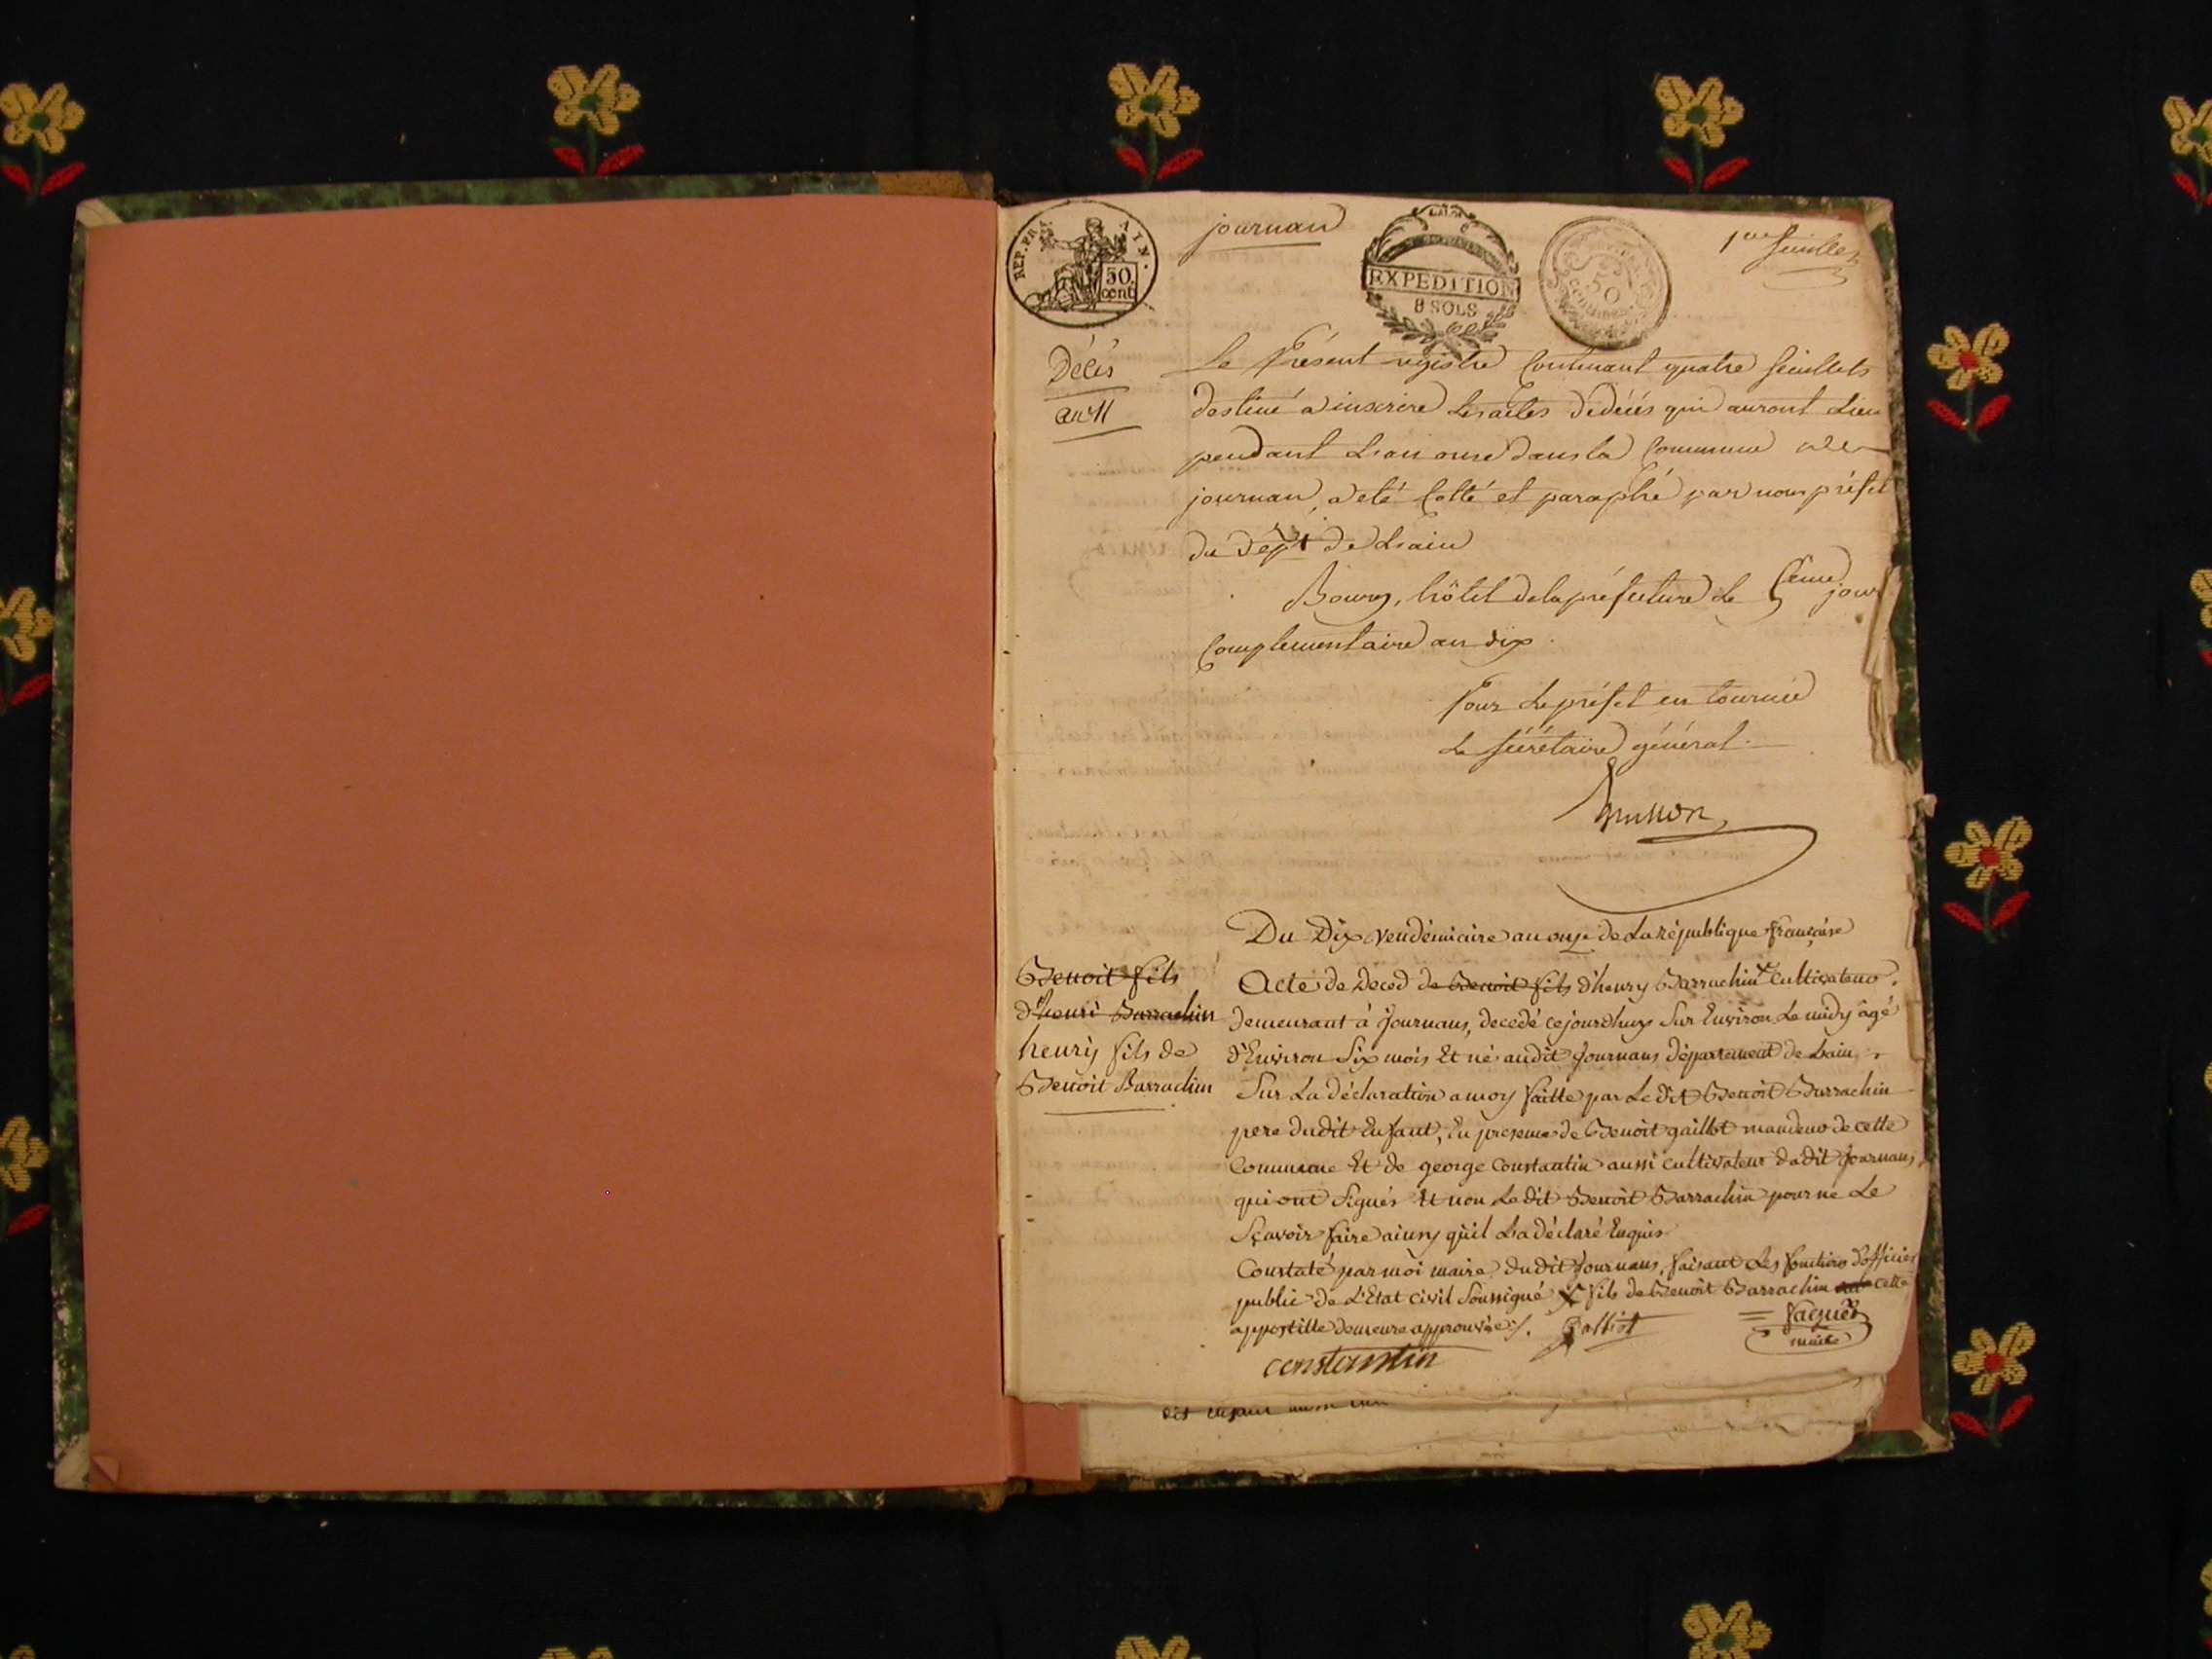 REP. FRA. AIN.
50
cent.
journan
EXPEDITION
8 SOLS
50
1er feuillet
Décès
an 11
Le Présent registre Contenant quatre feuillets
destiné a inscrire les actes de décès qui auront Lieu
pendant L'an onze dans la Commune de
journan, a eté Cotté et paraphé par nous préfet
du dépt de L'ain
Bourg, hôtel de la préfecture Le 5eme jour
Complementaire an dix.
Pour Le préfet en tournée
Le secrétaire général.
Du Dix Vendémiaire an onze de La république française
Benoit fils
d'henri Barrachin
henry fils de
Benoit Barrachin
Acte de Deced de Benoit fils d'henry Barrachin X Cultivateur.
demeurant à Journans, decedé cejourdhuy Sur Environ Le midy âgé
d'Environ Six mois Et né audit Journans Département de Lain
Sur La déclaration a moy faitte par Le dit Benoit Barrachin
pere dudit Enfant, En presence de Benoit gaillot mandeur de cette
Commune Et de george Constantin aussi cultivateur dudit Journans,
qui ont Signés Et non Le dit Benoit Barrachin pour ne Le
Sçavoir faire ainsy qu'il L'a déclaré Enquis
Constaté par moi maire dudit Journans, faisant Les fonctions d'officier
public de L'Etat civil Soussigné X fils de Benoit Barrachin cette
appostille demeure approuvée ./.
constantin
maire
dit enfant